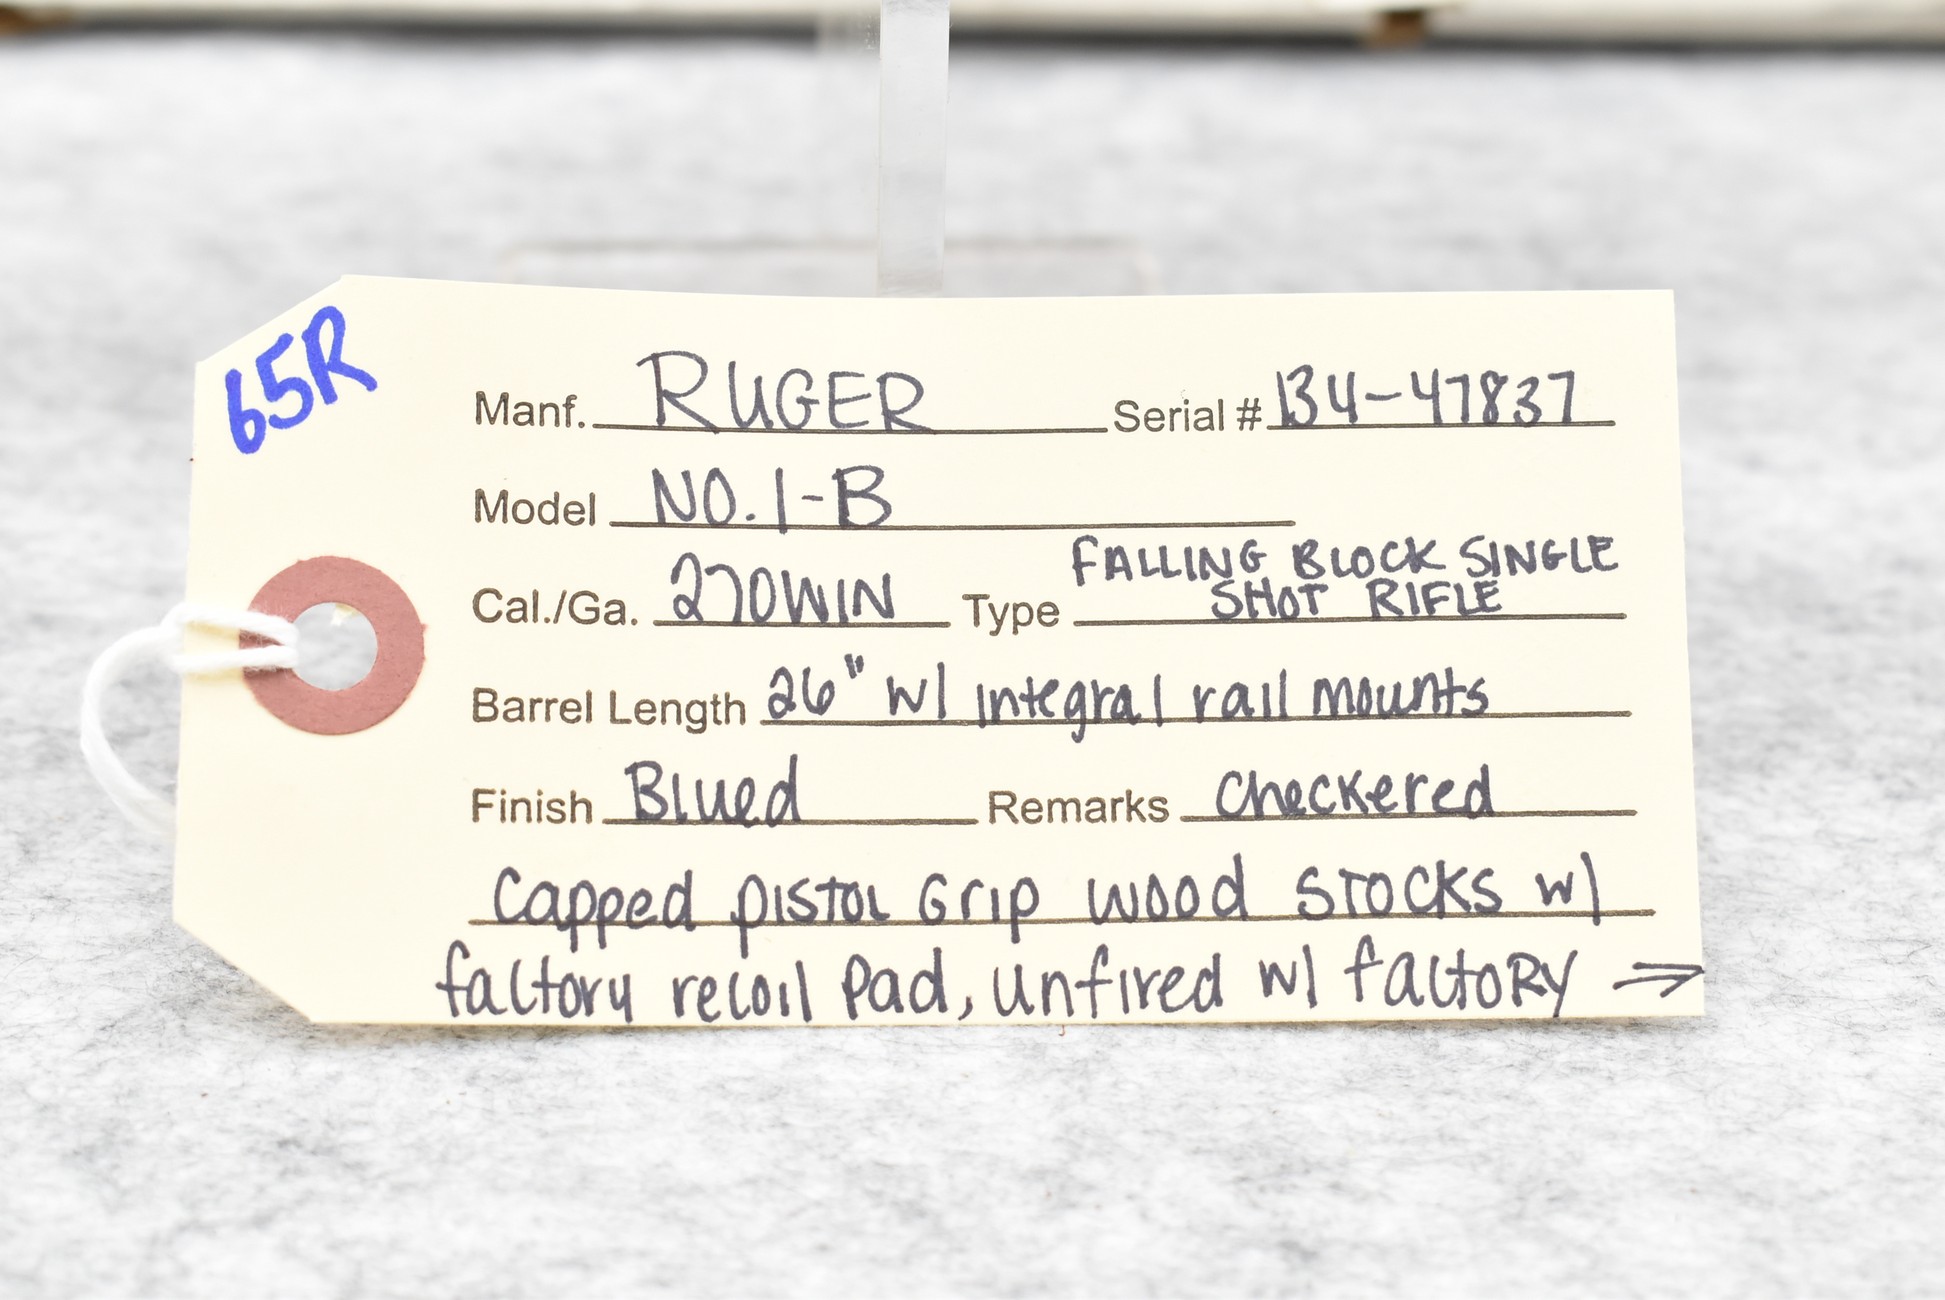 65R
Manf. RUGER Serial # 134-47837
Model NO. 1-B
Cal./Ga. 270WIN Type FALLING BLOCK SINGLE
SHOT RIFLE
Barrel Length 26" w/ integral rail mounts
Finish Blued Remarks Checkered
Capped Pistol Grip wood stocks w/
factory recoil pad, unfired w/ factory →